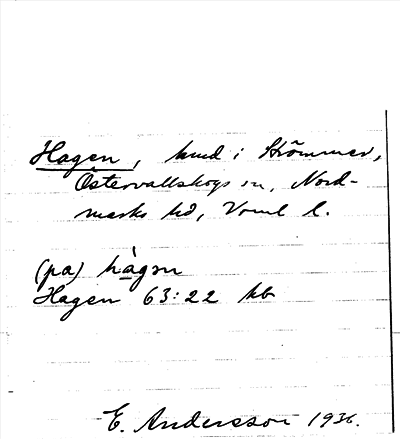 Hagen, hmd i Strömmer,
Östervallskogs sn, Nord-
marks hd, Vrml l.
(pa) hàgən
Hagen 63:22 kb
E. Andersson 1936.